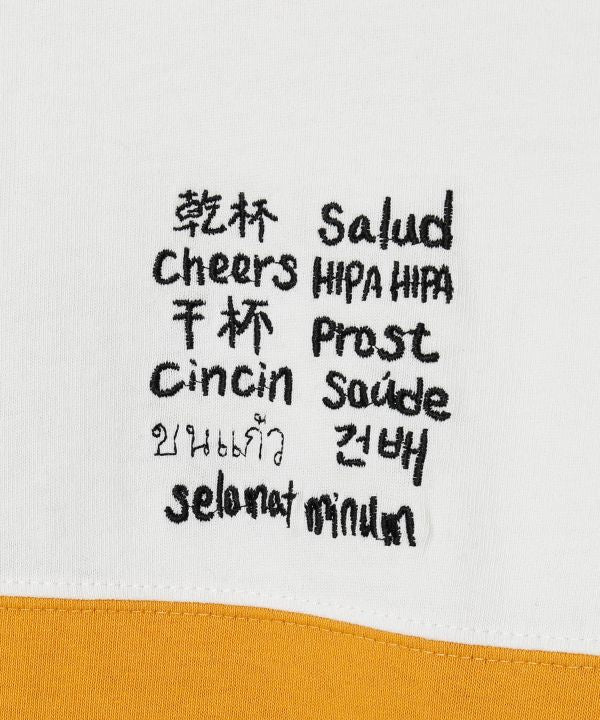 乾杯 Salud
Cheers HIPA HIPA
干杯 Prost
Cincin Saúde
ชนแก้ว 건배
selamat minum